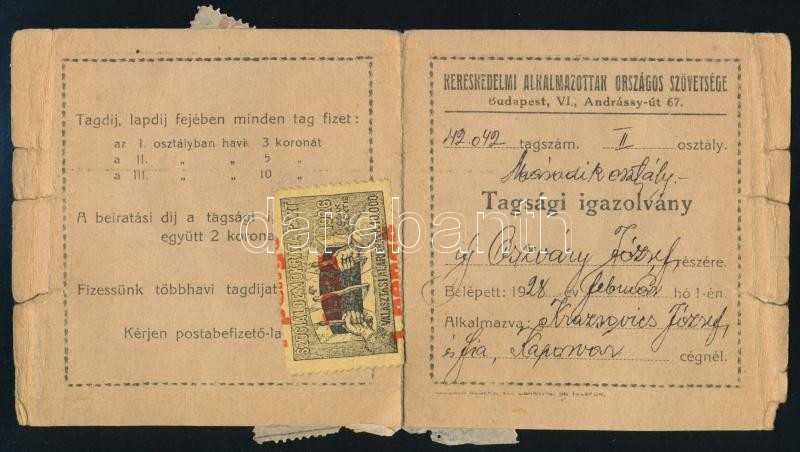 Tagdij, lapdij fejében minden tag fizet:
az I. osztályban havi 3 koronát
a II. „ „ 5 „
a III. „ „ 10 „
A beiratási dij a tagsági i
együtt 2 korona
Fizessünk többhavi tagdijat
Kérjen postabefizető-la
SZOCIÁLDEMOKRATA PÁRT
1926
VÁLASZTÁSI ALAP
darabanth
KERESKEDELMI ALKALMAZOTTAK ORSZÁGOS SZÖVETSÉGE
Budapest, VI., Andrássy-út 67.
42.042 tagszám. II osztály.
Második osztály.-
Tagsági igazolvány
József részére.
Belépett: 1928 év február hó 1-én.
Alkalmazva: József,
és fia, Kaposvár cégnél.